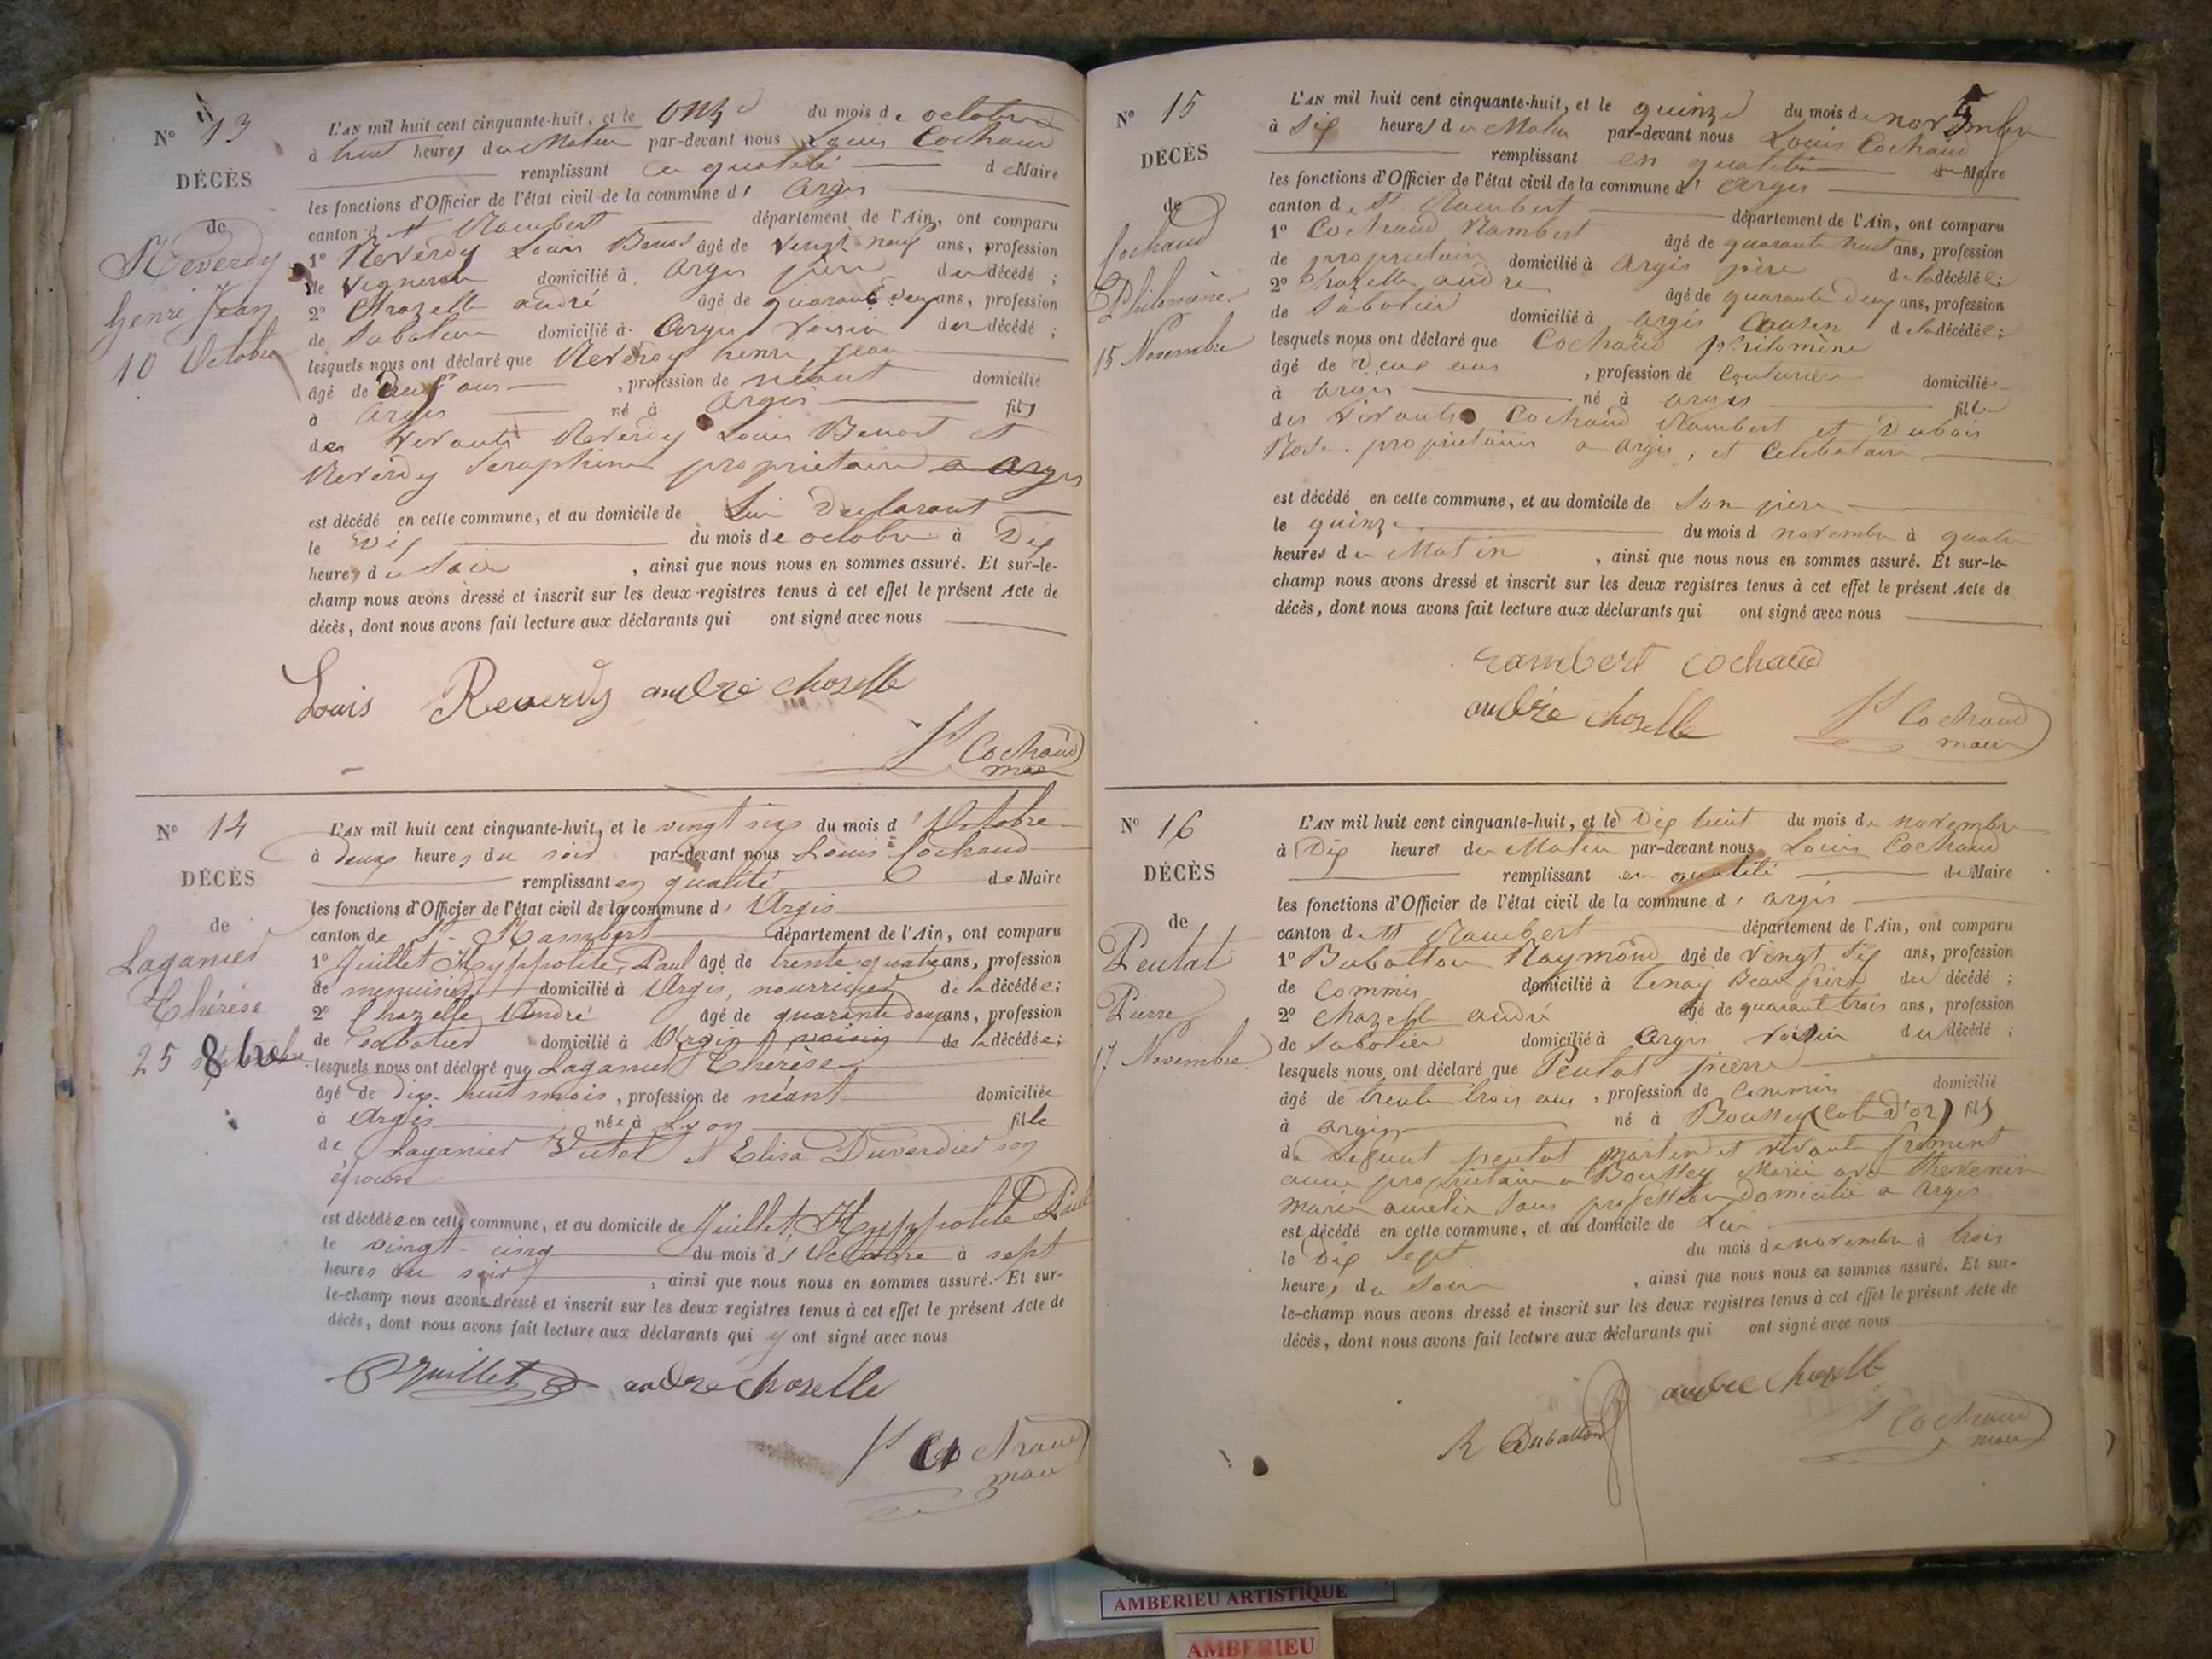 N° 13
DÉCÈS
de
Reverdy
henri Jean
10 Octobre
L'AN mil huit cent cinquante-huit, et le onze du mois de octobre
à huit heures du Matin par-devant nous Louis Cochaud
remplissant en qualité de Maire
les fonctions d'Officier de l'état civil de la commune d' Argis
canton de St Rambert département de l'Ain, ont comparu
1° Reverdy Louis Benoit âgé de vingt neuf ans, profession
de vigneron domicilié à Argis père du décédé ;
2° Chazelle andré âgé de quarante deux ans, profession
de Sabotier domicilié à Argis voisin du décédé ;
lesquels nous ont déclaré que Reverdy henri jean
âgé de ans , profession de néant domicilié
à Argis né à Argis fils
des vivants Reverdy Louis Benoit et
Reverdy Seraphine propriétaire a Argis
est décédé en cette commune, et au domicile de Lui Declarant
le Dix du mois de octobre à Dix
heures du Soir , ainsi que nous nous en sommes assuré. Et sur-le-
champ nous avons dressé et inscrit sur les deux registres tenus à cet effet le présent Acte de
décès, dont nous avons fait lecture aux déclarants qui ont signé avec nous
Louis Reverdy andré chozelle
Ls Cochaud
maire
N° 14
DÉCÈS
de
Laganier
Thérèse
25 8bre
L'AN mil huit cent cinquante-huit, et le vingt six du mois d'Octobre
à deux heures du soir par-devant nous Louis Cochaud
remplissant en qualité de Maire
les fonctions d'Officier de l'état civil de la commune d' Argis
canton de St Rambert département de l'Ain, ont comparu
1° Juillet Hyppolite, Paul âgé de trente quatre ans, profession
de menuisier domicilié à Argis, nourricier de la décédée ;
2° Chazelle André âgé de quarante deux ans, profession
de Sabotier domicilié à Argis voisin de la décédée ;
lesquels nous ont déclaré que Laganier Thérèse
âgé de dix-huit mois , profession de néant domiciliée
à Argis née à Lyon fille
de Laganier Victor et Elisa Duverdier son
épouse
est décédée en cette commune, et au domicile de Juillet Hyppolite Paul
le vingt-cinq du mois d'Octobre à sept
heures du soir , ainsi que nous nous en sommes assuré. Et sur-
le-champ nous avons dressé et inscrit sur les deux registres tenus à cet effet le présent Acte de
décès, dont nous avons fait lecture aux déclarants qui y ont signé avec nous
Juillet andré chozelle
Ls Cochaud
maire
N° 15
DÉCÈS
de
Cochaud
Philomène
15 Novembre
L'AN mil huit cent cinquante-huit, et le quinze du mois de novembre
à Six heures du Matin par-devant nous Louis Cochaud
remplissant en qualité de Maire
les fonctions d'Officier de l'état civil de la commune d' Argis
canton de St Rambert département de l'Ain, ont comparu
1° Cochaud Rambert âgé de quarante huit ans, profession
de propriétaire domicilié à Argis père de la décédée ;
2° Chazelle andré âgé de quarante deux ans, profession
de Sabotier domicilié à Argis Cousin de la décédée ;
lesquels nous ont déclaré que Cochaud philomène
âgé de ans , profession de Couturière domiciliée
à Argis né à Argis fille
des vivants Cochaud Rambert et Dubois
Rose propriétaires a Argis, et Celibataire
est décédé en cette commune, et au domicile de Son père
le quinze du mois d novembre à quatre
heures du Matin , ainsi que nous nous en sommes assuré. Et sur-le-
champ nous avons dressé et inscrit sur les deux registres tenus à cet effet le présent Acte de
décès, dont nous avons fait lecture aux déclarants qui ont signé avec nous
rambert cochaud
andré chozelle
Ls Cochaud
maire
N° 16
DÉCÈS
de
Peutat
Pierre
17 Novembre
L'AN mil huit cent cinquante-huit, et le Dix huit du mois de novembre
à Dix heures du Matin par-devant nous Louis Cochaud
remplissant en qualité de Maire
les fonctions d'Officier de l'état civil de la commune d' Argis
canton de St Rambert département de l'Ain, ont comparu
1° Raymond âgé de vingt Six ans, profession
de Commis domicilié à tenay Beau frère du décédé ;
2° Chazelle andré âgé de quarante trois ans, profession
de Sabotier domicilié à Argis voisin du décédé ;
lesquels nous ont déclaré que Peutat pierre
âgé de trente trois ans , profession de Commis domicilié
à argis né à Boussey (cote D'or) fils
de Defunt peutat Martin et vivante froment
anne propriétaire a Boussey Marié avec thevenin
Marie amelie Sans profession domicilié a Argis
est décédé en cette commune, et au domicile de Lui
le Dix Sept du mois de novembre à trois
heures du Soir , ainsi que nous nous en sommes assuré. Et sur-
le-champ nous avons dressé et inscrit sur les deux registres tenus à cet effet le présent Acte de
décès, dont nous avons fait lecture aux déclarants qui ont signé avec nous
andré chozelle
R
Ls Cochaud
maire
AMBERIEU ARTISTIQUE
AMBERIEU